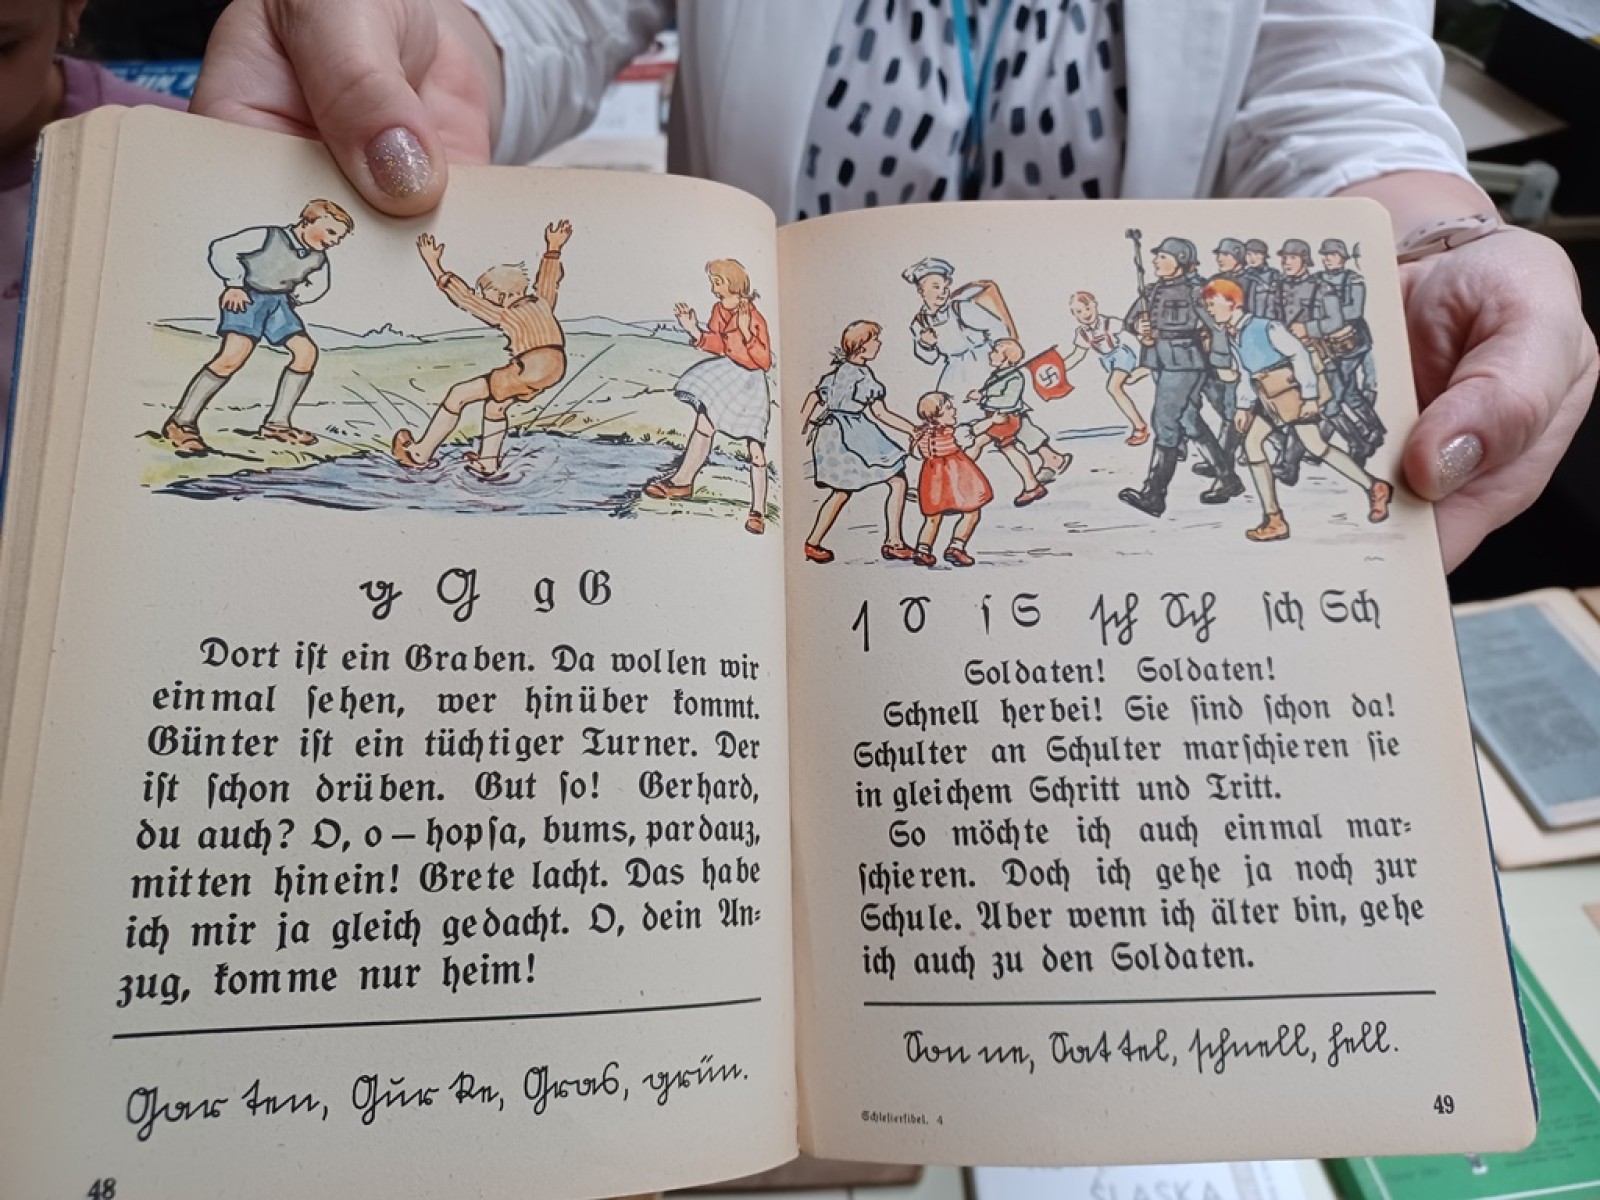 g G g G
Dort ist ein Graben. Da wollen wir
einmal sehen, wer hinüber kommt.
Günter ist ein tüchtiger Turner. Der
ist schon drüben. Gut so! Gerhard,
du auch? O, o – hopsa, bums, pardauz,
mitten hinein! Grete lacht. Das habe
ich mir ja gleich gedacht. O, dein An-
zug, komme nur heim!
Garten, Gurke, Gras, grün.
48
ſ S ſ S ſch Sch ſch Sch
Soldaten! Soldaten!
Schnell herbei! Sie sind schon da!
Schulter an Schulter marschieren sie
in gleichem Schritt und Tritt.
So möchte ich auch einmal mar-
schieren. Doch ich gehe ja noch zur
Schule. Aber wenn ich älter bin, gehe
ich auch zu den Soldaten.
Sonne, Sattel, schnell, hell.
Schlesierfibel. 4
49
ŚLĄSKA